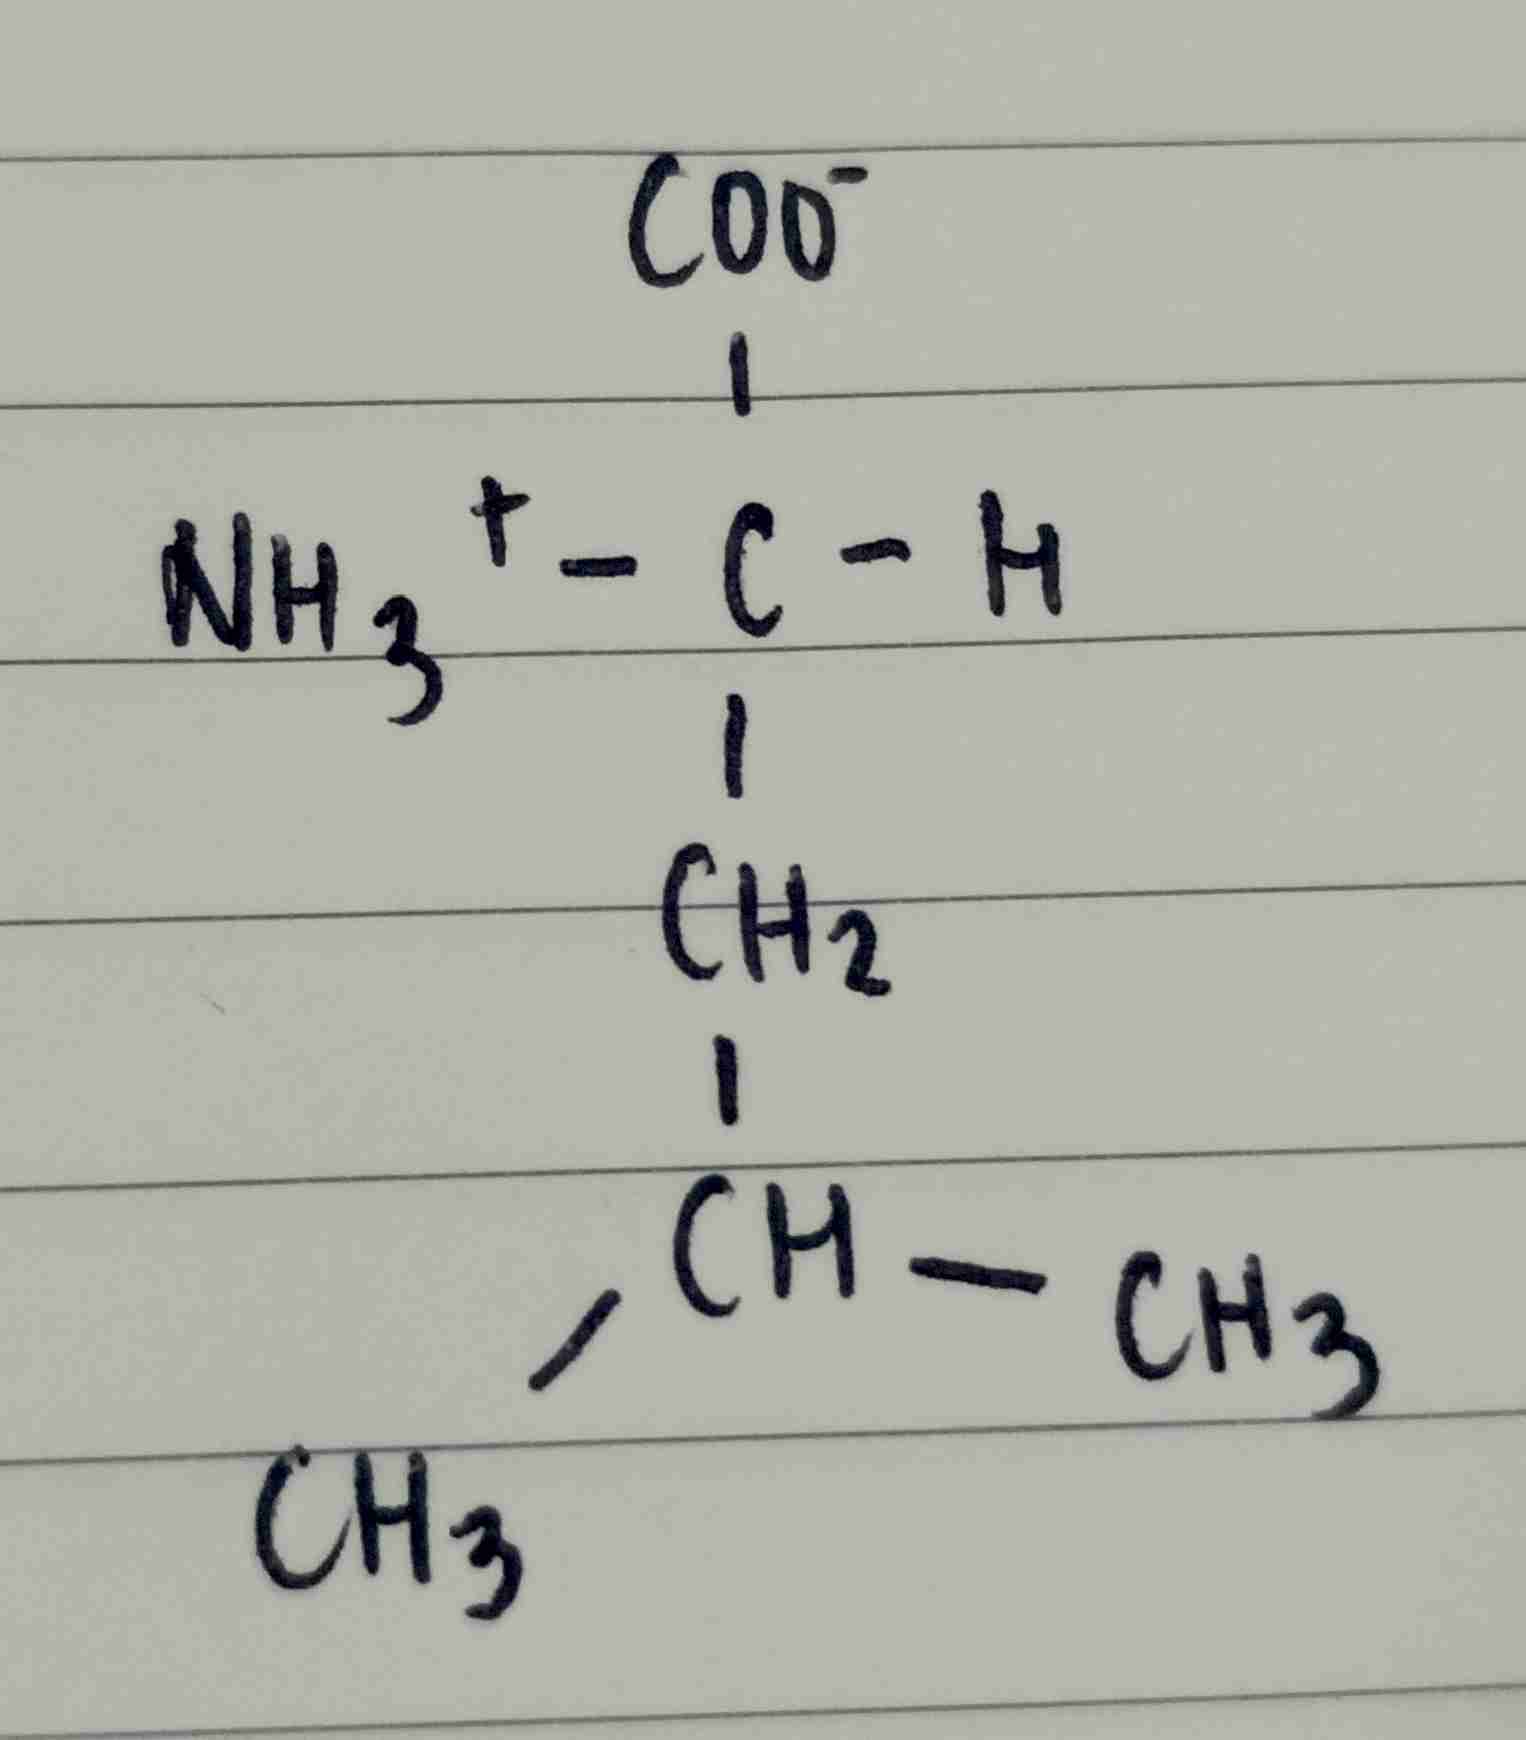 COO⁻
|
NH₃⁺ - C - H
|
CH₂
|
CH — CH₃
/
CH₃